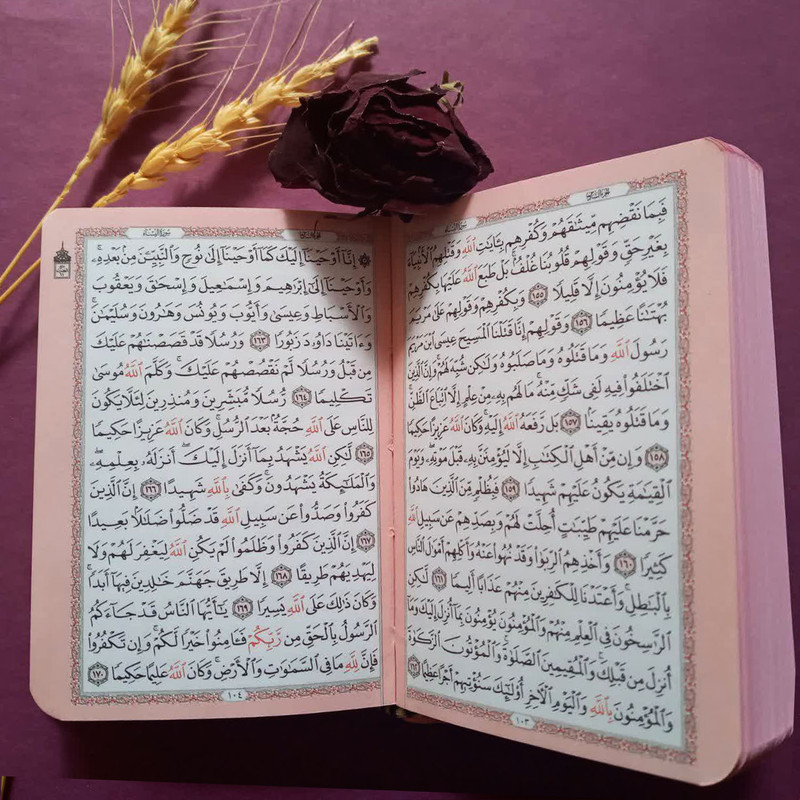 الجزء السادس
سورة النساء
فَبِمَا نَقْضِهِم مِّيثَٰقَهُمْ وَكُفْرِهِم بِـَٔايَٰتِ ٱللَّهِ وَقَتْلِهِمُ ٱلْأَنۢبِيَآءَ
بِغَيْرِ حَقٍّ وَقَوْلِهِمْ قُلُوبُنَا غُلْفٌۢ بَلْ طَبَعَ ٱللَّهُ عَلَيْهَا بِكُفْرِهِمْ
فَلَا يُؤْمِنُونَ إِلَّا قَلِيلًا ١٥٥ وَبِكُفْرِهِمْ وَقَوْلِهِمْ عَلَىٰ مَرْيَمَ
بُهْتَٰنًا عَظِيمًا ١٥٦ وَقَوْلِهِمْ إِنَّا قَتَلْنَا ٱلْمَسِيحَ عِيسَى ٱبْنَ مَرْيَمَ
رَسُولَ ٱللَّهِ وَمَا قَتَلُوهُ وَمَا صَلَبُوهُ وَلَٰكِن شُبِّهَ لَهُمْ ۚ وَإِنَّ ٱلَّذِينَ
ٱخْتَلَفُوا۟ فِيهِ لَفِى شَكٍّ مِّنْهُ ۚ مَا لَهُم بِهِۦ مِنْ عِلْمٍ إِلَّا ٱتِّبَاعَ ٱلظَّنِّ ۚ
وَمَا قَتَلُوهُ يَقِينًۢا ١٥٧ بَل رَّفَعَهُ ٱللَّهُ إِلَيْهِ ۚ وَكَانَ ٱللَّهُ عَزِيزًا حَكِيمًا
١٥٨ وَإِن مِّنْ أَهْلِ ٱلْكِتَٰبِ إِلَّا لَيُؤْمِنَنَّ بِهِۦ قَبْلَ مَوْتِهِۦ ۖ وَيَوْمَ
ٱلْقِيَٰمَةِ يَكُونُ عَلَيْهِمْ شَهِيدًا ١٥٩ فَبِظُلْمٍ مِّنَ ٱلَّذِينَ هَادُوا۟
حَرَّمْنَا عَلَيْهِمْ طَيِّبَٰتٍ أُحِلَّتْ لَهُمْ وَبِصَدِّهِمْ عَن سَبِيلِ ٱللَّهِ
كَثِيرًا ١٦٠ وَأَخْذِهِمُ ٱلرِّبَوٰا۟ وَقَدْ نُهُوا۟ عَنْهُ وَأَكْلِهِمْ أَمْوَٰلَ ٱلنَّاسِ
بِٱلْبَٰطِلِ ۚ وَأَعْتَدْنَا لِلْكَٰفِرِينَ مِنْهُمْ عَذَابًا أَلِيمًا ١٦١ لَّٰكِنِ
ٱلرَّٰسِخُونَ فِى ٱلْعِلْمِ مِنْهُمْ وَٱلْمُؤْمِنُونَ يُؤْمِنُونَ بِمَآ أُنزِلَ إِلَيْكَ وَمَآ
أُنزِلَ مِن قَبْلِكَ ۚ وَٱلْمُقِيمِينَ ٱلصَّلَوٰةَ ۚ وَٱلْمُؤْتُونَ ٱلزَّكَوٰةَ
وَٱلْمُؤْمِنُونَ بِٱللَّهِ وَٱلْيَوْمِ ٱلْءَاخِرِ أُو۟لَٰٓئِكَ سَنُؤْتِيهِمْ أَجْرًا عَظِيمًا ١٦٢
١٠٣
سورة النساء
۞ إِنَّآ أَوْحَيْنَآ إِلَيْكَ كَمَآ أَوْحَيْنَآ إِلَىٰ نُوحٍ وَٱلنَّبِيِّۦنَ مِنۢ بَعْدِهِۦ ۚ
وَأَوْحَيْنَآ إِلَىٰٓ إِبْرَٰهِيمَ وَإِسْمَٰعِيلَ وَإِسْحَٰقَ وَيَعْقُوبَ
وَٱلْأَسْبَاطِ وَعِيسَىٰ وَأَيُّوبَ وَيُونُسَ وَهَٰرُونَ وَسُلَيْمَٰنَ ۚ
وَءَاتَيْنَا دَاوُۥدَ زَبُورًا ١٦٣ وَرُسُلًا قَدْ قَصَصْنَٰهُمْ عَلَيْكَ
مِن قَبْلُ وَرُسُلًا لَّمْ نَقْصُصْهُمْ عَلَيْكَ ۚ وَكَلَّمَ ٱللَّهُ مُوسَىٰ
تَكْلِيمًا ١٦٤ رُّسُلًا مُّبَشِّرِينَ وَمُنذِرِينَ لِئَلَّا يَكُونَ
لِلنَّاسِ عَلَى ٱللَّهِ حُجَّةٌۢ بَعْدَ ٱلرُّسُلِ ۚ وَكَانَ ٱللَّهُ عَزِيزًا حَكِيمًا
١٦٥ لَّٰكِنِ ٱللَّهُ يَشْهَدُ بِمَآ أَنزَلَ إِلَيْكَ ۖ أَنزَلَهُۥ بِعِلْمِهِۦ ۖ
وَٱلْمَلَٰٓئِكَةُ يَشْهَدُونَ ۚ وَكَفَىٰ بِٱللَّهِ شَهِيدًا ١٦٦ إِنَّ ٱلَّذِينَ
كَفَرُوا۟ وَصَدُّوا۟ عَن سَبِيلِ ٱللَّهِ قَدْ ضَلُّوا۟ ضَلَٰلًۢا بَعِيدًا
١٦٧ إِنَّ ٱلَّذِينَ كَفَرُوا۟ وَظَلَمُوا۟ لَمْ يَكُنِ ٱللَّهُ لِيَغْفِرَ لَهُمْ وَلَا
لِيَهْدِيَهُمْ طَرِيقًا ١٦٨ إِلَّا طَرِيقَ جَهَنَّمَ خَٰلِدِينَ فِيهَآ أَبَدًا ۚ
وَكَانَ ذَٰلِكَ عَلَى ٱللَّهِ يَسِيرًا ١٦٩ يَٰٓأَيُّهَا ٱلنَّاسُ قَدْ جَآءَكُمُ
ٱلرَّسُولُ بِٱلْحَقِّ مِن رَّبِّكُمْ فَـَٔامِنُوا۟ خَيْرًا لَّكُمْ ۚ وَإِن تَكْفُرُوا۟
فَإِنَّ لِلَّهِ مَا فِى ٱلسَّمَٰوَٰتِ وَٱلْأَرْضِ ۚ وَكَانَ ٱللَّهُ عَلِيمًا حَكِيمًا ١٧٠
١٠٤